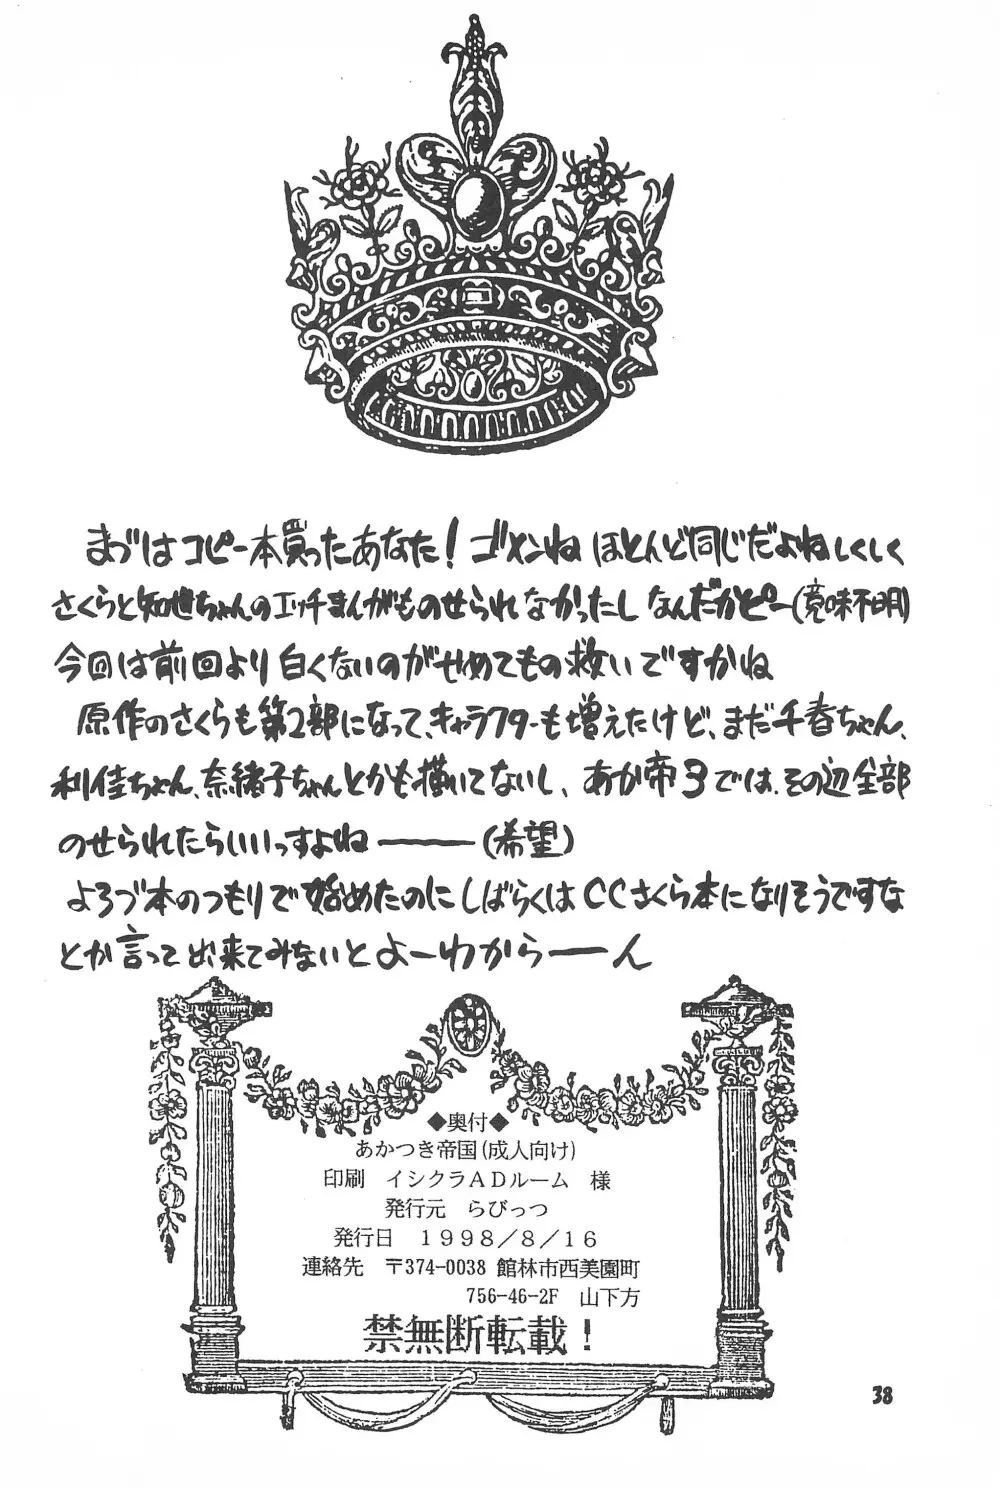 まづはコピー本買ったあなた！ゴメンね ほとんど同じだよねしくしく
さくらと知世ちゃんのエッチまんがものせられなかったし なんだかピー(意味不明)
今回は前回より白くないのがせめてもの救いですかね
原作のさくらも第2部になって、キャラクターも増えたけど、まだ千春ちゃん、
利佳ちゃん、奈緒子ちゃんとかも描いてないし、あか帝3では、その辺全部
のせられたらいいっすよね———(希望)
よろづ本のつもりで始めたのにしばらくはCCさくら本になりそうですな
とか言って出来てみないとよーわからーーん
◆奥付◆
あかつき帝国(成人向け)
印刷 イシクラADルーム 様
発行元 らびっつ
発行日 1998/8/16
連絡先 〒374-0038 館林市西美園町
756-46-2F 山下方
禁無断転載！
38